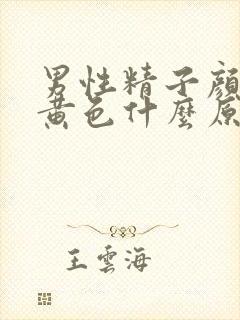 男性精子顏
黃色什麼原
王雲海